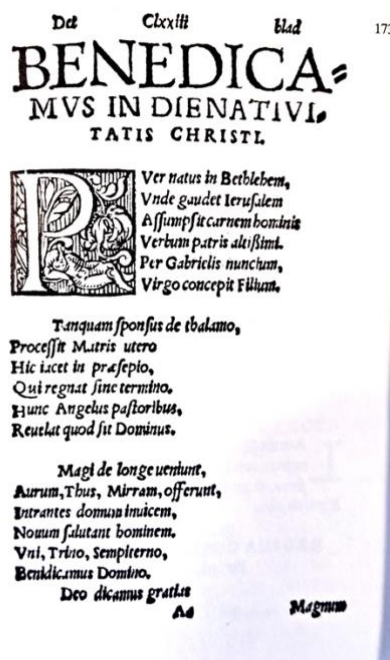 Det Clxxiii blad
173
BENEDICA=
MVS IN DIE NATIVI,
TATIS CHRISTI.
PVer natus in Bethlehem,
Vnde gaudet Ierusalem
Assumpsit carnem hominis
Verbum patris altißimi.
Per Gabrielis nuncium,
Virgo concepit Filium.
Tanquam sponsus de thalamo,
Processit Matris utero
Hic iacet in præsepio,
Qui regnat sine termino.
Hunc Angelus pastoribus,
Reuelat quod sit Dominus.
Magi de longe ueniunt,
Aurum, Thus, Mirram, offerunt,
Intrantes domum inuicem,
Nouum salutant hominem.
Vni, Trino, Sempiterno,
Benidicamus Domino.
Deo dicamus gratias
Ad Magnum